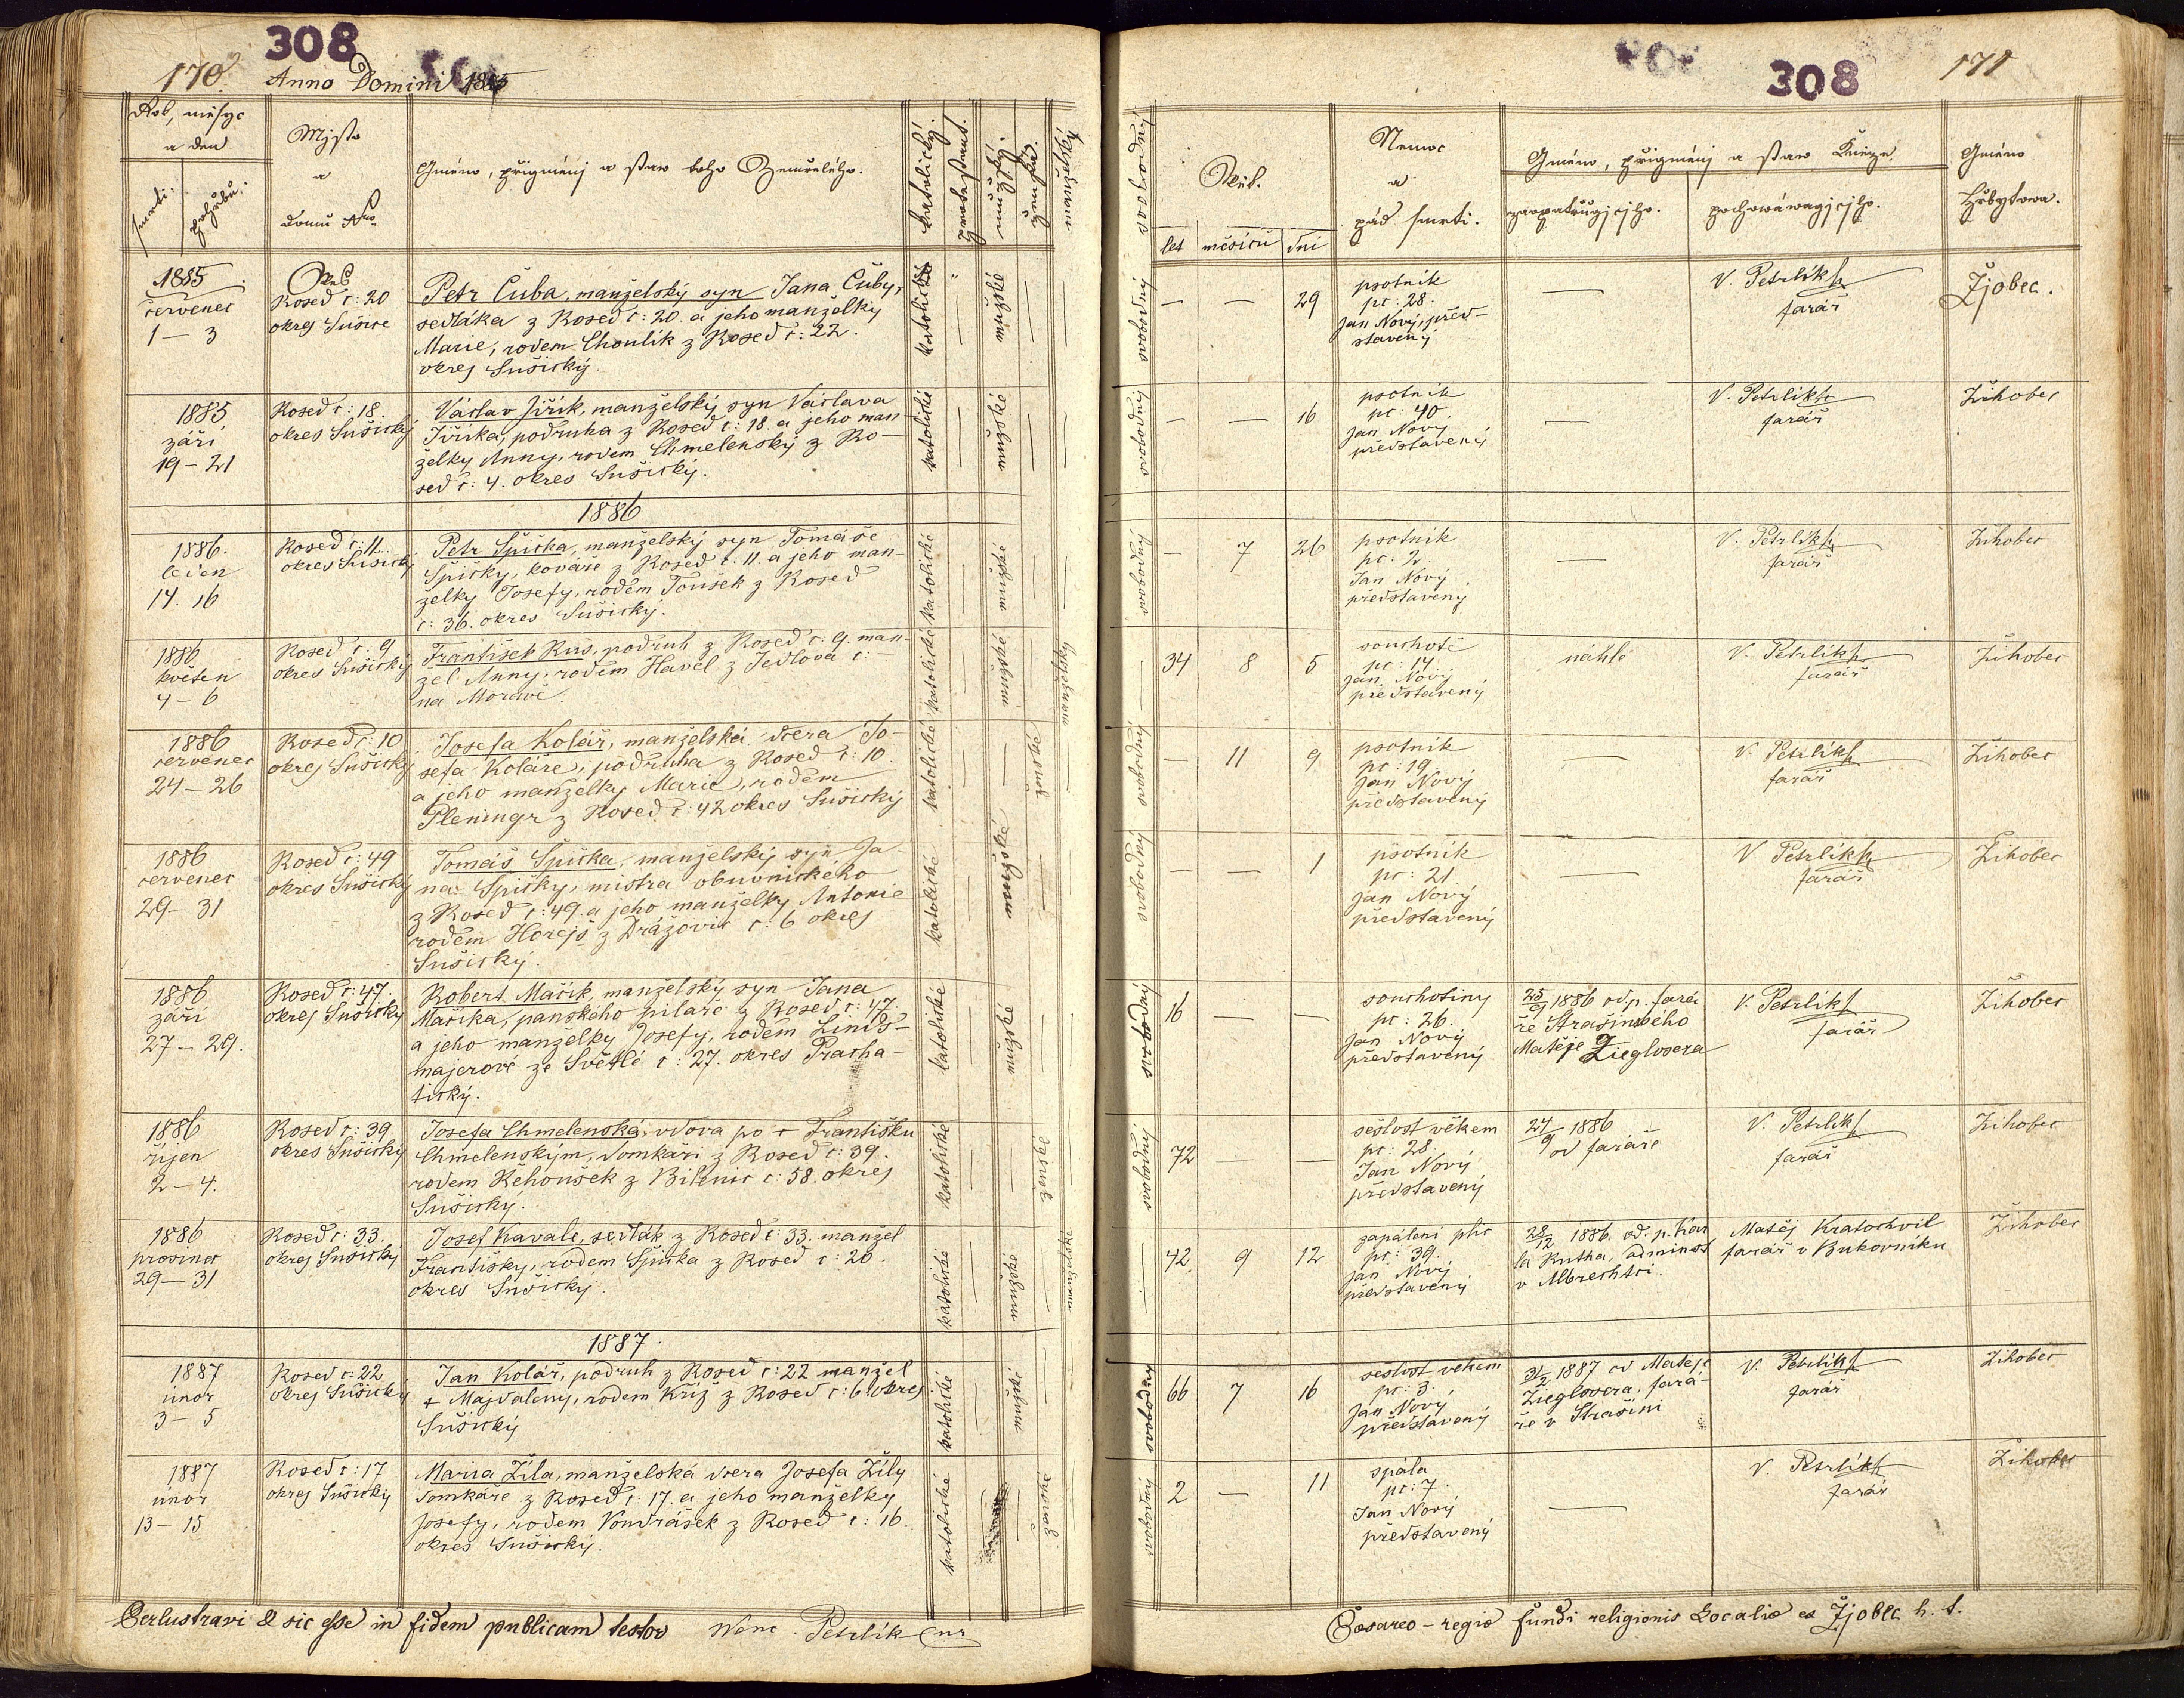 308
170.
Anno Domini 1885
Rok, měsyc
a den
smrti.
pohřbu.
Mjsto
a
domu Nro
Gméno, přigmenj a staw toho Zemřelého.
katolický.
protestant.
mužský.
ženská.
manželský
1885
červenec
1 – 3
Ves
Rosed č: 20
okres Sušice
Petr Čuba, manželský syn Jana Čuby,
sedláka z Rosed č: 20. a jeho manželky
Marie, rodem Choulík z Rosed č: 22.
okres Sušický.
katolické
mužské
1885
září
19 – 21
Rosed č: 18.
okres Sušický
Václav Jiřík, manželský syn Václava
Jiříka, podruha z Rosed č: 18 a jeho man
želky Anny, rodem Chmelenský z Ro-
sed č: 4. okres Sušický.
katolické
mužské
1886
1886.
leden
14. 16
Rosed č: 11.
okres Sušický
Petr Špička, manželský syn Tomáše
Špičky, kováře z Rosed č: 11. a jeho man-
želky Josefy, rodem Toušek z Rosed
č: 36. okres Sušický.
katolické
mužské
1886
květen
4 – 6
Rosed č: 9
okres Sušický
František Rus, podruh z Rosed č: 9. man-
žel Anny, rodem Havel z Jedlova č: –
na Moravě.
katolické
mužské
manželský
1886
červenec
24 – 26
Rosed č: 10
okres Sušický
Josefa Kolář, manželská dcera Jo-
sefa Koláře, podruha z Rosed č: 10.
a jeho manželky Marie, rodem
Pleningr z Rosed č: 42 okres Sušický
katolické
ženské
1886
červenec
29 – 31
Rosed č: 49
okres Sušický
Tomáš Špička, manželský syn Ja-
na Špičky, mistra obuvnického
z Rosed č: 49. a jeho manželky Antonie
rodem Horejš z Drážovic č: 6 okres
Sušický.
katolické
mužské
1886
září
27 – 29.
Rosed č: 47.
okres Sušický
Robert Mařík, manželský syn Jana
Maříka, panského pilaře z Rosed č: 47.
a jeho manželky Josefy, rodem Linds-
majerové ze Světlé č: 27. okres Pracha-
tický.
katolické
mužské
1886
říjen
2 – 4.
Rosed č: 39
okres Sušický
Josefa Chmelenská, vdova po + Františku
Chmelenským, domkáři z Rosed č: 39.
rodem Řehoušek z Bilenic č: 58. okres
Sušický.
katolické
ženské
1886
prosinec
29 – 31
Rosed č: 33.
okres Sušický
Josef Kavale, sedlák z Rosed č: 33. manžel
Františky, rodem Špička z Rosed č: 26
okres Sušický.
katolické
mužské
manželské
1887.
1887
únor
3 – 5
Rosed č: 22
okres Sušický
Jan Kolář, podruh z Rosed č: 22 manžel
+ Majdaleny, rodem Kříž z Rosed č: 61 okres
Sušický
katolické
mužské
1887
únor
13 – 15
Rosed č: 17
okres Sušický
Maria Žíla, manželská dcera Josefa Žíly
domkáře z Rosed č: 17. a jeho manželky
Josefy, rodem Vondrášek z Rosed č: 16.
okres Sušický.
katolické
ženské
Perlustravi & sic esse in fidem publicam testor Wenc. Petrlík
308
171
svobodný
Wěk.
let
měsíců
dní
Nemoc
a
pád smrti.
Gméno, přigmenj a staw Knězе
zaopatrugjcjho.
pochowáwagjcjho.
Gméno
Hřbytowa.
svobodný
— — 29
psotník
pc: 28.
Jan Nový, před-
stavený
V. Petrlík
farář
Žjobec.
svobodný
— — 16
psotník
pc: 40.
Jan Nový
představený
V. Petrlík
farář
Žihobec
svobodný
— 7 26
psotník
pc: 2.
Jan Nový
představený
V. Petrlík
farář
Žihobec
34 8 5
souchotě
pc: 14.
Jan Nový
představený
náhle
V. Petrlík
farář
Žihobec
svobodný
— 11 9
psotník
pc: 19
Jan Nový
představený
V. Petrlík
farář
Žihobec
svobodný
— — 1
psotník
pc: 21.
Jan Nový
představený
V. Petrlík
farář
Žihobec
svobodný
16 — —
souchotiny
pc: 26.
Jan Nový
představený
25/9 1886 od p. fará
ře Strašínského
Matěje Zieglosera
V. Petrlík
farář
Žihobec
svobodný
72 — —
sešlost věkem
pc: 28.
Jan Nový
představený
24/9 1886
od faráře
V. Petrlík
farář
Žihobec
42. 9 12
zapálení plic
pc: 39.
Jan Nový
představený
28/12 1886. od. p. Kar
la Rutha, administ
v Albrechtci.
Matěj Kratochvil
farář v Bukovníku
Žihobec
svobodný
66 7 16
sešlost věkem
pc: 3.
Jan Nový
představený
3/2 1887 od Matěje
Zieglosera, fará-
ře v Strašíni
V. Petrlík
farář
Žihobec
svobodný
2 — 11
spála
pc: 7.
Jan Nový
představený
V. Petrlík
farář
Žihobec
Cæsareo – regiæ fundi religionis Localiæ ex Žjobec h. t.